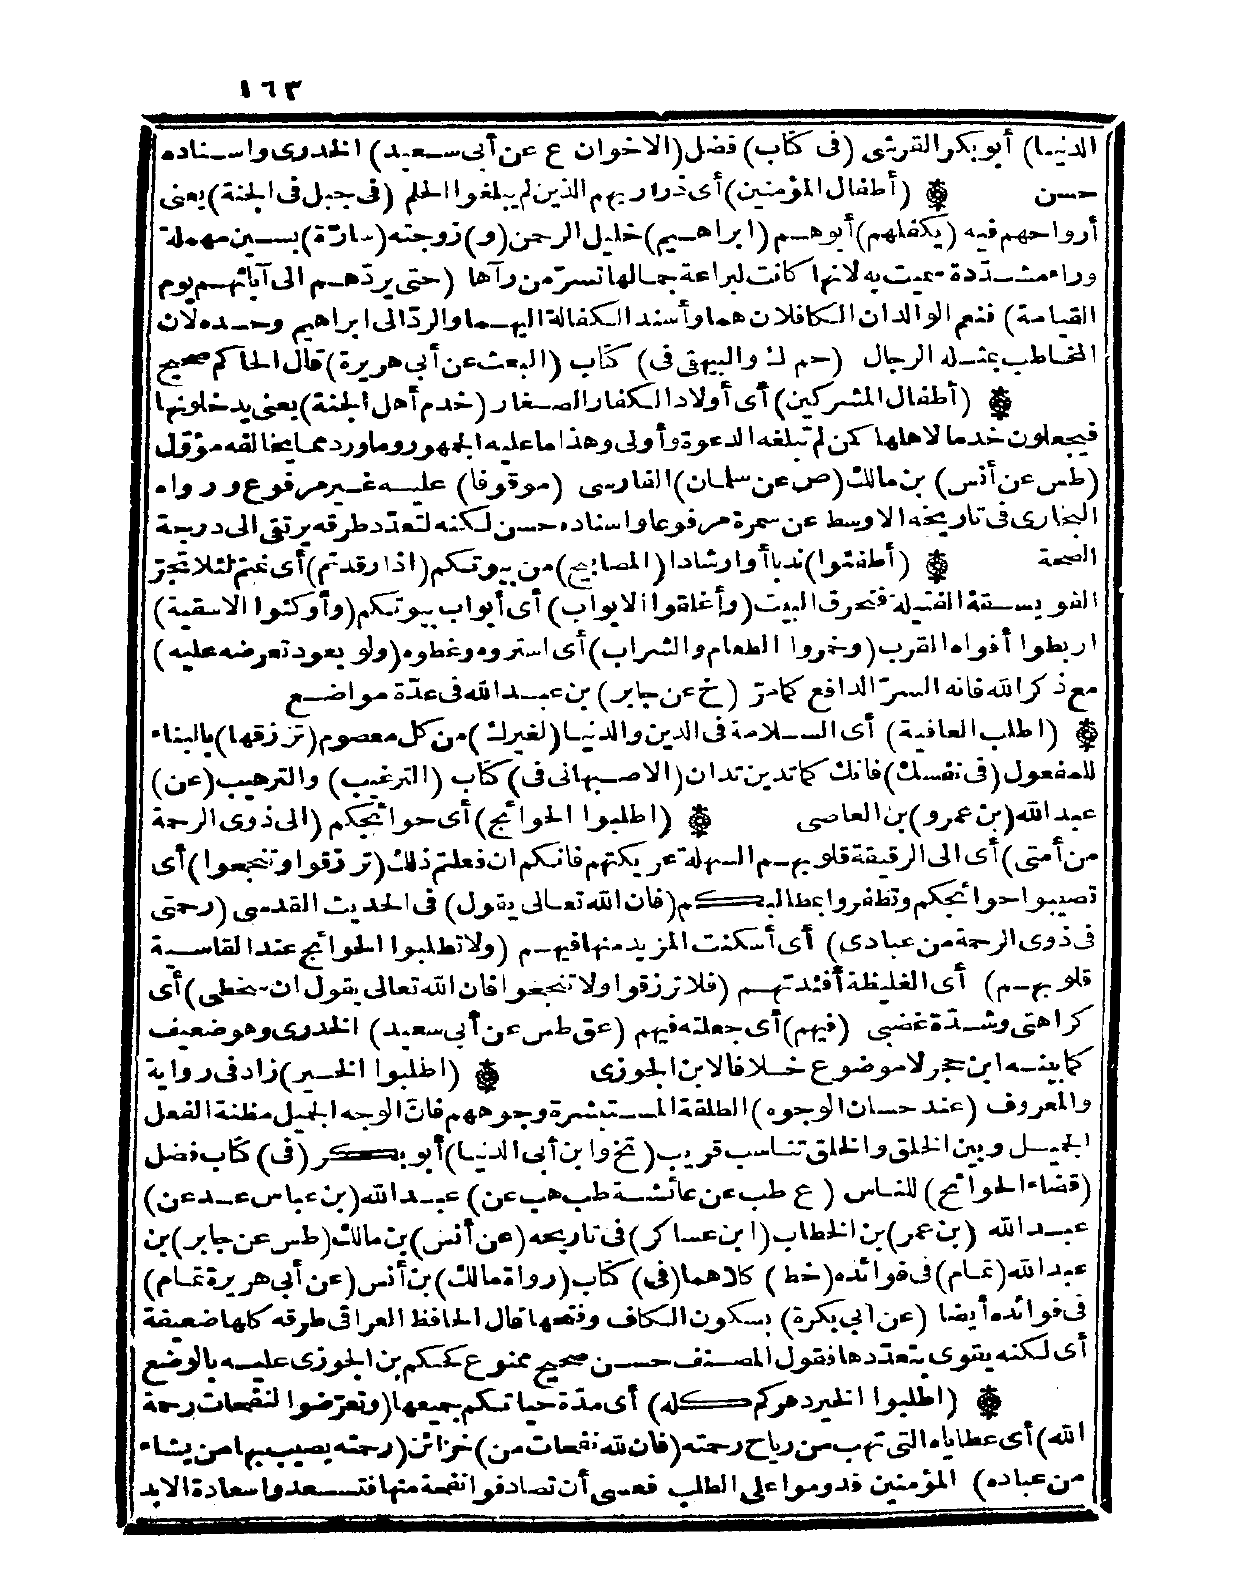 ١٦٣
الدنيا) أبو بكر القرشى (فى كتاب) فضل (الاخوان ع عن أبى سعيد) الخدرى واسناده
حسن (أطفال المؤمنين) أى ذراريهم الذين لم يبلغوا الحلم (فى جبل فى الجنة) يعنى
أرواحهم فيه (يكفلهم) أبوهم (ابراهيم) خليل الرحمن (و) زوجته (سارّة) بسين مهملة
وراء مشدّدة سميت به لانها كانت لبراعة جمالها تسرّ من رآها (حتى يردّهم الى آبائهم يوم
القيامة) فنعم الوالدان الكافلان هما وأسند الكفالة اليهما والردّ الى ابراهيم وحده لان
المخاطب بمثله الرجال (حم ك والبيهقى فى) كتاب (البعث عن أبى هريرة) قال الحاكم صحيح
(أطفال المشركين) أى أولاد الكفار الصغار (خدم أهل الجنة) يعنى يدخلونها
فيجعلون خدما لاهلها كمن لم تبلغه الدعوة وأولى وهذا ما عليه الجمهور وما ورد مما يخالفه مؤوّل
(طس عن أنس) بن مالك (ص عن سلمان) الفارسى (موقوفا) عليه غير مرفوع ورواه
البخارى فى تاريخه الاوسط عن سمرة مرفوعا واسناده حسن لكنه لتعدّد طرقه يرتقى الى درجة
الصحة (أطفئوا) ندبا أو ارشادا (المصابيح) من بيوتكم (اذا رقدتم) أى نمتم لئلا تجرّ
الفويسقة الفتيلة فتحرق البيت (وأغلقوا الابواب) أى أبواب بيوتكم (وأوكئوا الاسقية)
اربطوا أفواه القرب (وخمروا الطعام والشراب) أى استروه وغطوه (ولو بعود تعرضه عليه)
مع ذكر الله فانه السرّ الدافع كما مرّ (خ عن جابر) بن عبد الله فى عدّة مواضع
(اطلب العافية) أى السلامة فى الدين والدنيا (لغيرك) من كل معصوم (ترزقها) بالبناء
للمفعول (فى نفسك) فانك كما تدين تدان (الاصبهانى فى) كتاب (الترغيب) والترهيب (عن)
عبد الله (بن عمرو) بن العاصى (اطلبوا الحوائج) أى حوائجكم (الى ذوى الرحمة
من أمتى) أى الى الرقيقة قلوبهم السهلة عريكتهم فانكم ان فعلتم ذلك (ترزقوا وتنجحوا) أى
تصيبوا حوائجكم وتظفروا بمطالبكم (فان الله تعالى يقول) فى الحديث القدسى (رحمتى
فى ذوى الرحمة من عبادى) أى أسكنت المزيد منها فيهم (ولا تطلبوا الحوائج عند القاسية
قلوبهم) أى الغليظة أفئدتهم (فلا ترزقوا ولا تنجحوا فان الله تعالى يقول ان سخطى) أى
كراهتى وشدّة غضبى (فيهم) أى جعلته فيهم (عق طس عن أبى سعيد) الخدرى وهو ضعيف
كما بينه ابن حجر لا موضوع خلافا لابن الجوزى (اطلبوا الخير) زاد فى رواية
والمعروف (عند حسان الوجوه) الطلقة المستبشرة وجوههم فانّ الوجه الجميل مظنة الفعل
الجميل وبين الخلق والخلق تناسب قريب (تخ وابن أبى الدنيا) أبو بكر (فى) كتاب فضل
(قضاء الحوائج) للناس (ع طب عن عائشة طب هب عن) عبد الله (بن عباس عد عن)
عبد الله (بن عمر) بن الخطاب (ابن عساكر) فى تاريخه (عن أنس) بن مالك (طس عن جابر) بن
عبد الله (تمام) فى فوائده (خط) كلاهما (فى) كتاب (رواة مالك) بن أنس (عن أبى هريرة تمام)
فى فوائده أيضا (عن أبى بكرة) بسكون الكاف وفتحها قال الحافظ العراقى طرقه كلها ضعيفة
أى لكنه يقوى بتعدّدها فقول المصنف حسن صحيح ممنوع كحكم بن الجوزى عليه بالوضع
(اطلبوا الخير دهركم كله) أى مدّة حياتكم جميعها (وتعرّضوا لنفحات رحمة
الله) أى عطاياه التى تهب من رياح رحمته (فان لله نفحات من) خزائن (رحمته يصيب بها من يشاء
من عباده) المؤمنين فدوموا على الطلب فعسى أن تصادفوا نفحة منها فتسعدوا سعادة الابد